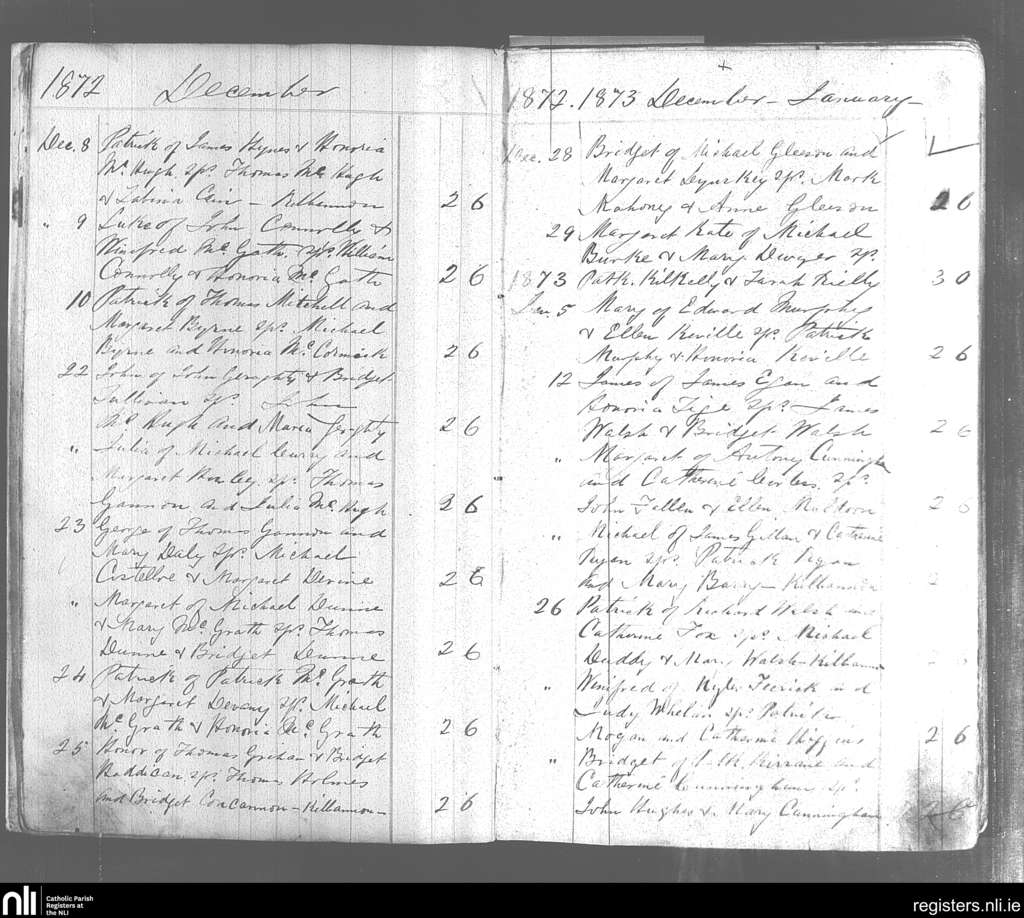 1872 December
Dec. 8 Patrick of James Hynes & Honoria
Mc Hugh sps. Thomas Mc Hugh
& Sabina - Kilbannon 2 6
" 9 Luke of John Connolly &
Winifred Mc Gath sps. William
Connolly & Honoria Mc Gath 2 6
10 Patrick of Thomas Mitchell and
Margaret Byrne sps. Michael
Byrne and Honoria Mc Cormick 2 6
22 John of John Geraghty & Bridget
Sullivan sps. John
Mc Hugh and Maria Gerghty 2 6
" Julia of Michael Curry and
Margaret sps. Thomas
Gannon and Julia Mc Hugh 2 6
23 George of Thomas Gannon and
Mary Daly sps. Michael
Costelloe & Margaret Devine 2 6
" Margaret of Michael Dunne
& Mary Mc Grath sps. Thomas
Dunne & Bridget Dunne 2 6
24 Patrick of Patrick Mc Grath
& Margaret Devany sps. Michael
Mc Grath & Honoria Mc Grath 2 6
25 Honor of Thomas Graham & Bridget
Raddican sps. Thomas Holmes
and Bridget Concannon - Kilbannon - 2 6
1872. 1873 December - January -
Dec. 28 Bridget of Michael Gleeson and
Margaret sps. Mark
Mahony & Anne Gleeson 2 6
29 Margaret Kate of Michael
Burke & Mary Dwyer sps.
1873 Patk. Kilkelly & Sarah Rielly 3 0
Jan. 5 Mary of Edward Murphy
& Ellen Keville sps. Patrick
Murphy & Honoria Keville 2 6
12 James of James Egan and
Honoria Tige sps. James
Walsh & Bridget Walsh 2 6
" Margaret of Antony Cunningham
and Catherine sps.
John Fallon & Ellen Muldoon 2 6
" Michael of James Gillan & Catherine
Ryan sps. Patrick Ryan
and Mary Barry - Kilbannon 2
26 Patrick of Richard Walsh and
Catherine Fox sps. Michael
Duddy & Mary Walsh - Kilbannon
" Winifred of Myles and
Judy Whelan sps. Patrick
Mogan and Catherine Higgins 2 6
" Bridget of Patk. Kirrane and
Catherine Cunningham sps.
John Hughes & Mary Cunningham 2 6
nli Catholic Parish
Registers at
the NLI
registers.nli.ie